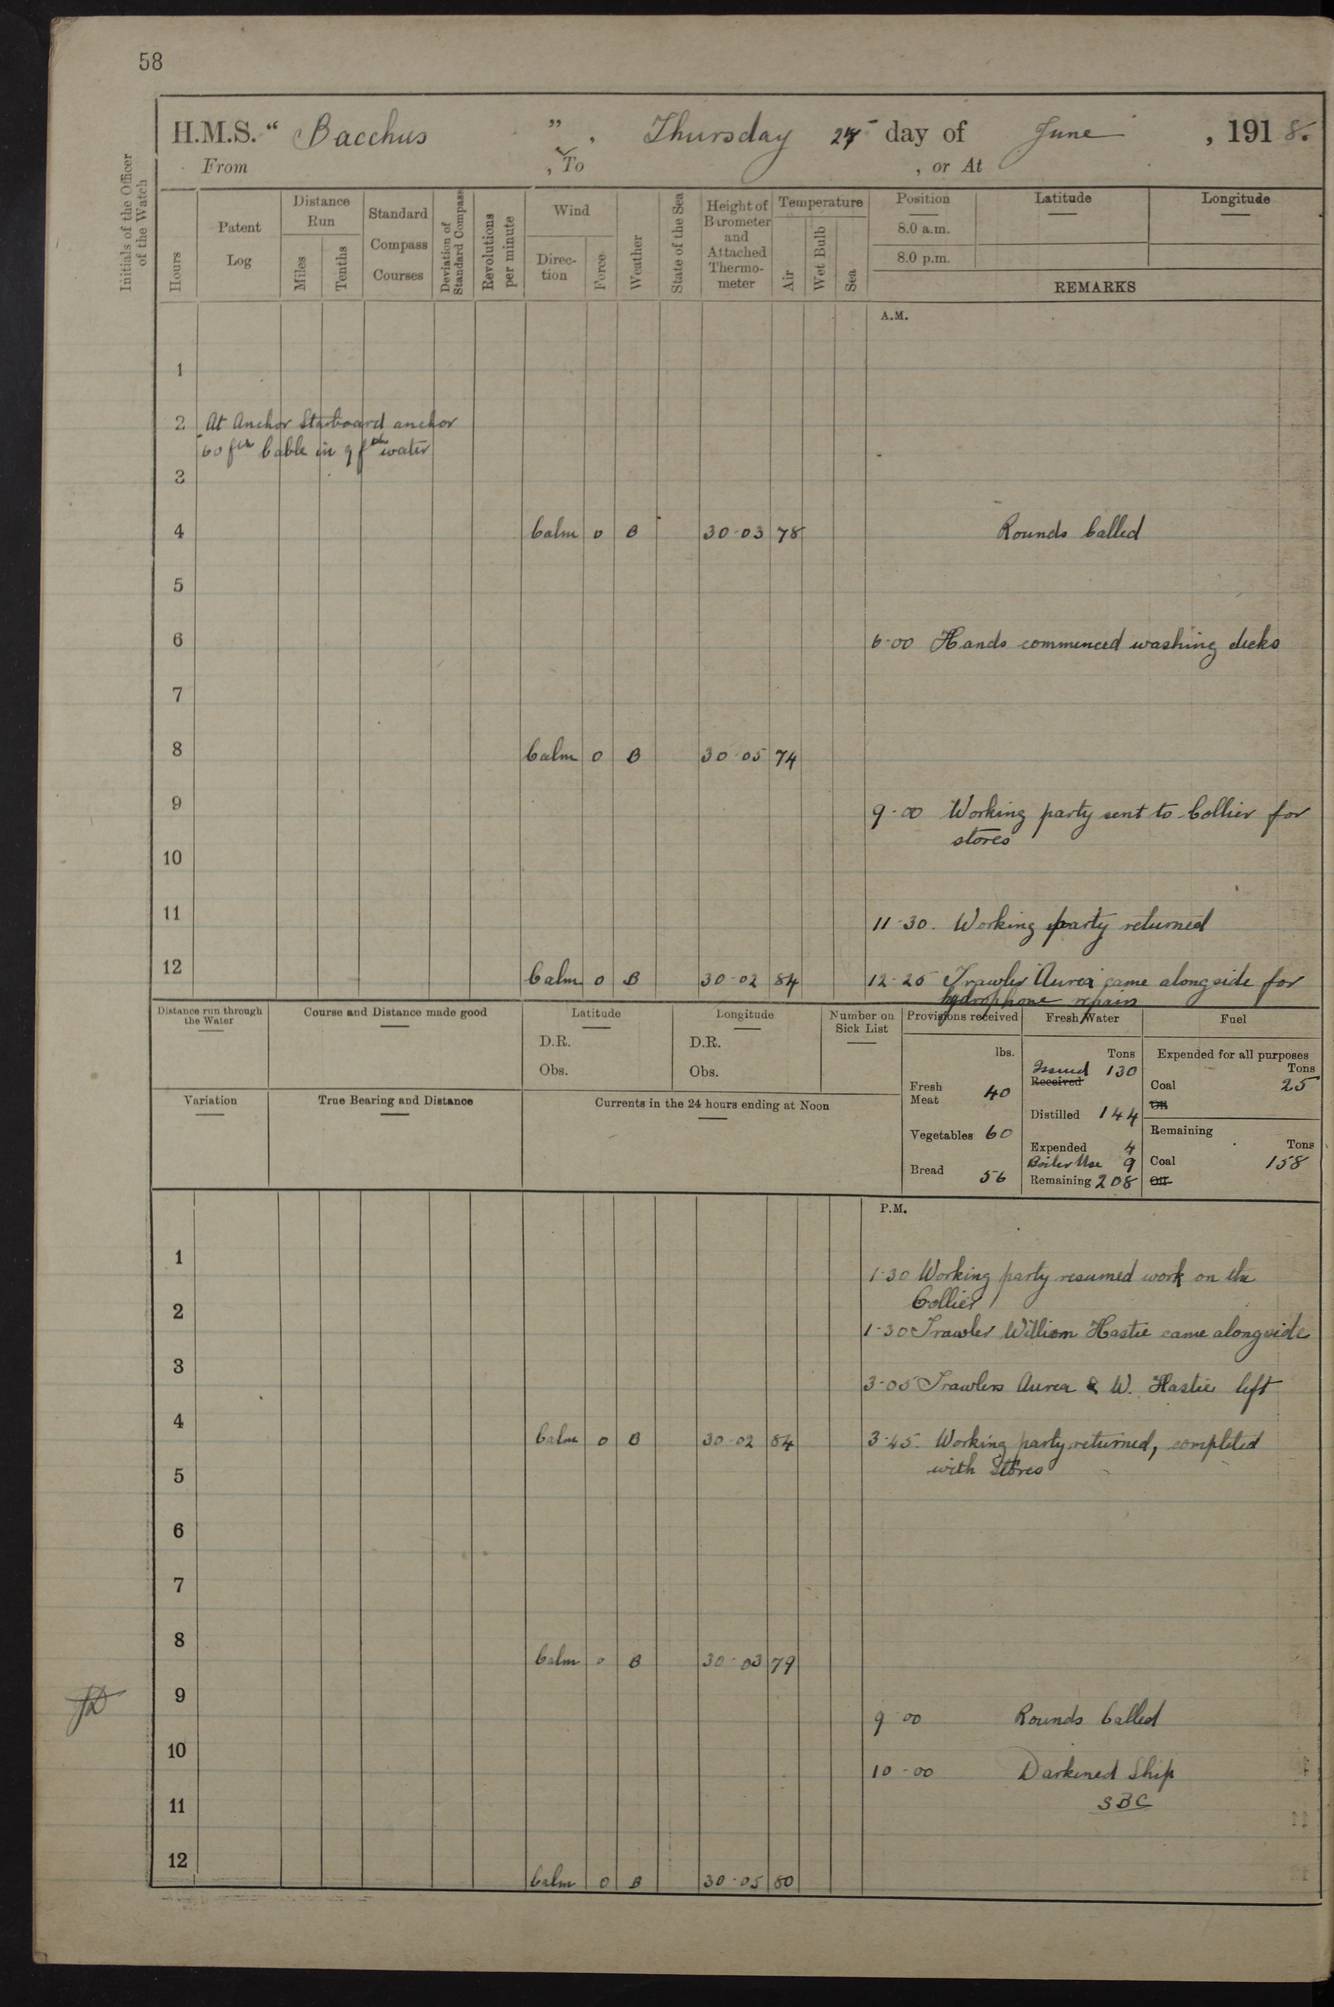 58
H.M.S. “ Bacchus ” , Thursday 27 day of June , 1918.
From , To , or At
Initials of the Officer of the Watch
Hours
Patent Log
Distance Run
Miles
Tenths
Standard Compass Courses
Deviation of Standard Compass
Revolutions per minute
Wind
Direction
Force
Weather
State of the Sea
Height of Barometer and Attached Thermometer
Temperature
Air
Wet Bulb
Sea
Position
8.0 a.m.
8.0 p.m.
Latitude
Longitude
REMARKS
A.M.
1
2 At Anchor Starboard anchor
60 fm Cable in 9 fth water
3
4 Calm 0 B 30·03 78 Rounds Called
5
6 6·00 Hands commenced washing decks
7
8 Calm 0 B 30·05 74
9 9·00 Working party sent to Collier for
stores
10
11 11·30. Working party returned
12 Calm 0 B 30·02 84 12·25 Trawler "Aurea" came alongside for
hydrophone repairs
Distance run through the Water
Course and Distance made good
Latitude
D.R.
Obs.
Longitude
D.R.
Obs.
Number on Sick List
Variation
True Bearing and Distance
Currents in the 24 hours ending at Noon
Provisions received
lbs.
Fresh Meat 40
Vegetables 60
Bread 56
Fresh Water
Tons
Issued 130
Received
Distilled 144
Expended 4
Boiler Use 9
Remaining 208
Fuel
Expended for all purposes
Tons
Coal 25
Oil
Remaining
Tons
Coal 158
Oil
P.M.
1
1·30 Working party resumed work on the
Collier
2
1·30 Trawler William Hastie came alongside
3
3·05 Trawlers Aurea & W. Hastie left
4 Calm 0 B 30·02 84 3·45. Working party returned, completed
with Stores
5
6
7
8 Calm 0 B 30·03 79
9
9·00 Rounds Called
10
10·00 Darkened Ship
SBC
11
12
Calm 0 B 30·05 80